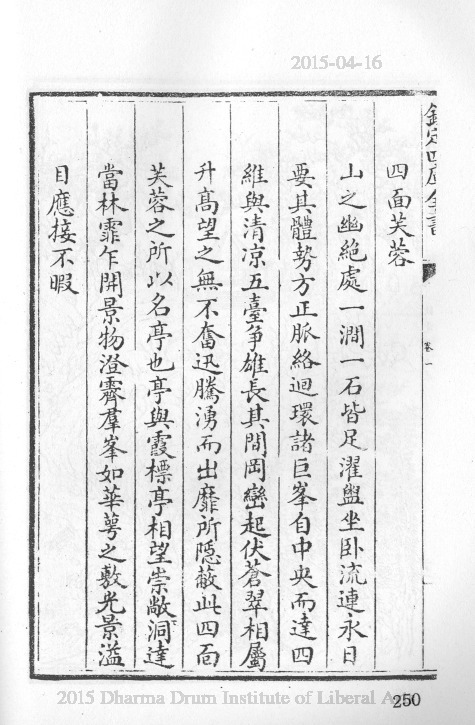 2015-04-16
欽定四庫全書
卷一
四面芙蓉
山之幽絶處一澗一石皆足濯盥坐卧流連永日
要其體勢方正脈絡迴環諸巨峯自中央而達四
維與清凉五臺爭雄長其間岡巒起伏蒼翠相屬
升髙望之無不奮迅騰湧而出靡所隠蔽此四面
芙蓉之所以名亭也亭與霞標亭相望崇敞洞達
當林霏乍開景物澄霽羣峯如華萼之敷光景溢
目應接不暇
2015 Dharma Drum Institute of Liberal A
250